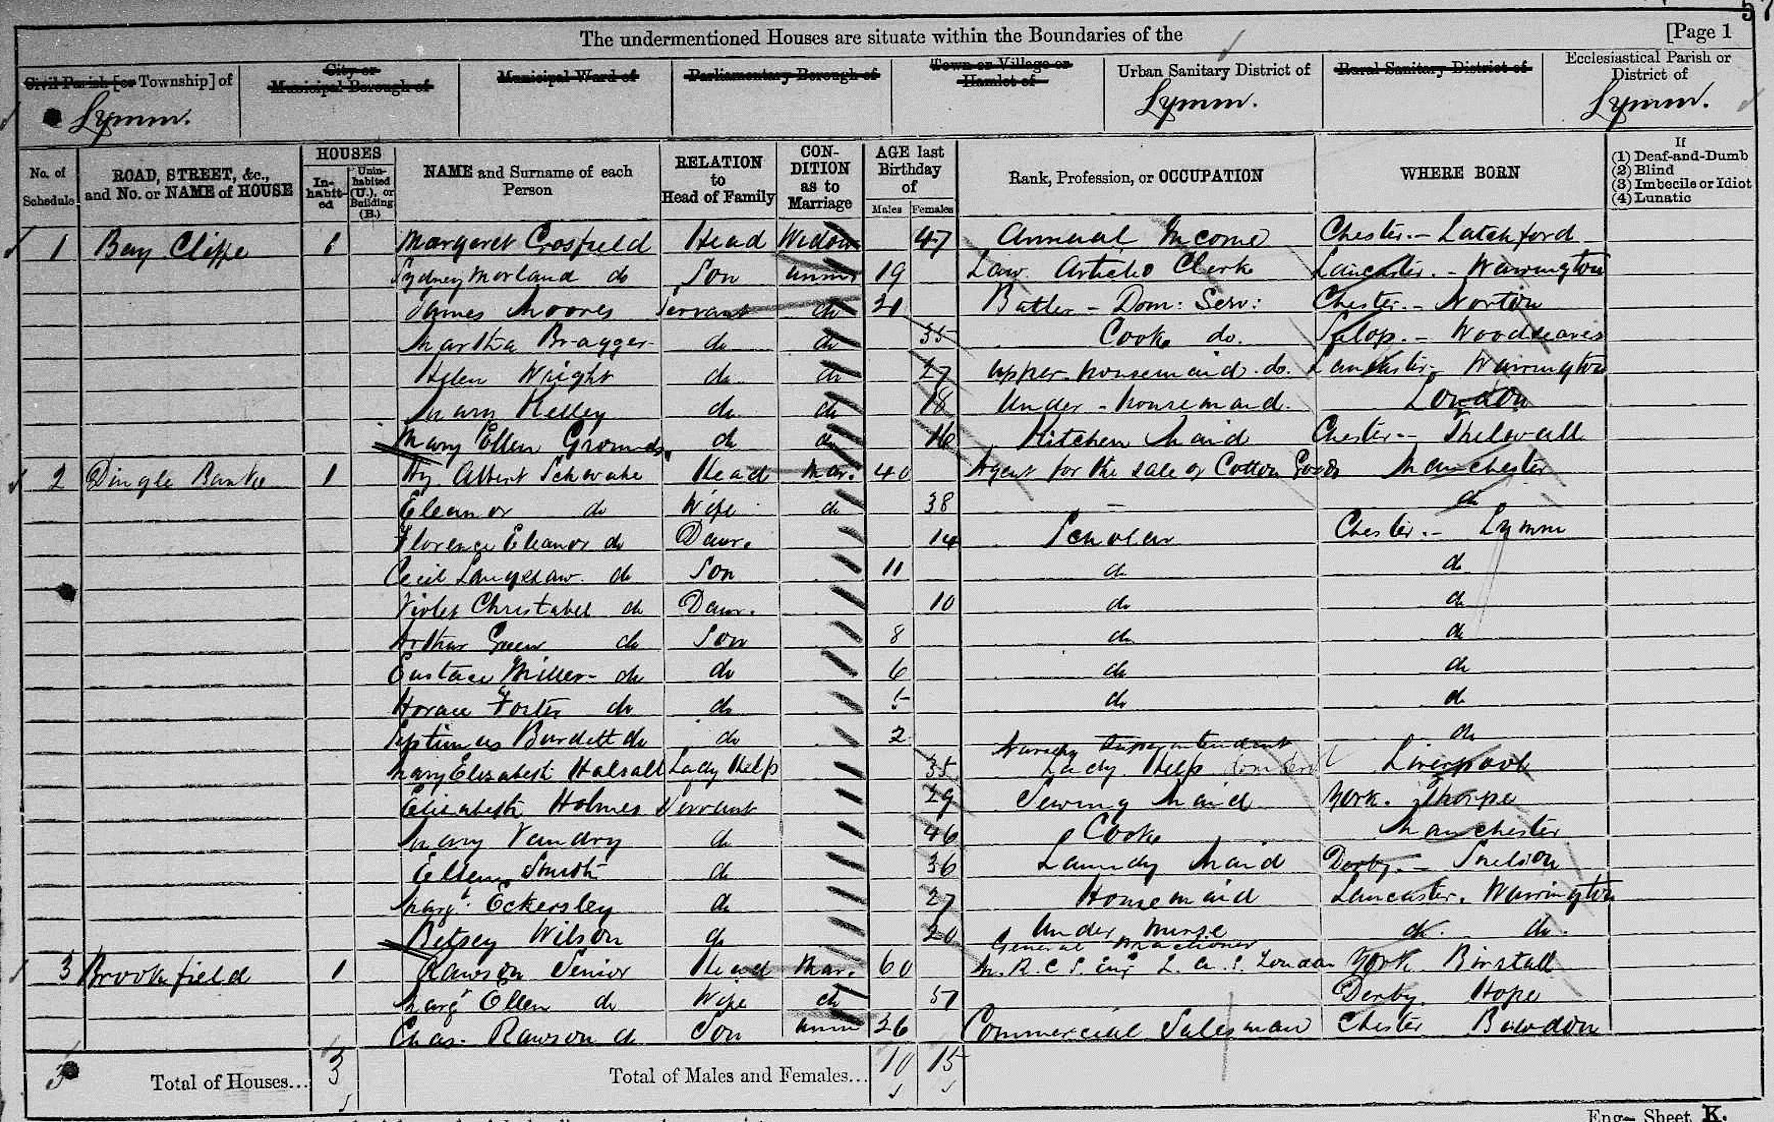 57
The undermentioned Houses are situate within the Boundaries of the [Page 1
Civil Parish [or Township] of
City or Municipal Borough of
Municipal Ward of
Parliamentary Borough of
Town or Village or Hamlet of
Urban Sanitary District of
Rural Sanitary District of
Ecclesiastical Parish or District of
Lymm. Lymm. Lymm.
No. of Schedule
ROAD, STREET, &c., and No. or NAME of HOUSE
HOUSES
In-habit-ed
Unin-habited (U.), or Building (B.)
NAME and Surname of each Person
RELATION to Head of Family
CON-DITION as to Marriage
AGE last Birthday of
Males Females
Rank, Profession, or OCCUPATION
WHERE BORN
If
(1) Deaf-and-Dumb
(2) Blind
(3) Imbecile or Idiot
(4) Lunatic
1 Bay Cliffe 1 Margaret Crosfield Head Widow 47 Annual Income Chester - Latchford
Sydney Morland do Son Unmr 19 Law Article Clerk Lancaster - Warrington
James Moores Servant do 21 Butler - Dom: Serv: Chester - Norton
Martha Bragger do do 35 Cook do. Salop - Woodseaves
Helen Wright do do 27 Upper housemaid do. Lancaster - Warrington
Mary Kelley do do 18 Under - housemaid London
Mary Ellen Grounds do do 16 Kitchen Maid Chester - Thelwall
2 Dingle Bank 1 Hy. Albert Schwabe Head Mar. 40 Agent for the sale of Cotton Goods Manchester
Eleanor do Wife do 38 - do
Florence Eleanor do Daur. 14 Scholar Chester - Lymm
Cecil Langshaw do Son 11 do do
Violet Christabel do Daur. 10 do do
Arthur Green do Son 8 do do
Eustace Miller do do 6 do do
Horace Foster do do 5 do do
Septimus Burdett do do 2 do
Nursery Superintendent
Mary Elizabeth Halsall Lady Help 35 Lady Help Liverpool
Elizabeth Holmes Servant 29 Sewing Maid York. Thorpe
Mary Vandry do 46 Cook Manchester
Ellen Smith do 36 Laundry Maid Derby -
Margt Eckersley do 27 Housemaid Lancaster. Warrington
Betsey Wilson do 20 Under Nurse do do.
General Practioner
3 Brookfield 1 Rawson Senior Head Mar. 60 M. R. C. S. Eng L. A. S. London York Birstall
Margt Ellen do Wife do 51 Derby. Hope
Chas. Rawson do Son Unmr 26 Commercial Salesman Chester Bowdon
3 Total of Houses... 3 Total of Males and Females... 10 15
Eng- Sheet K.